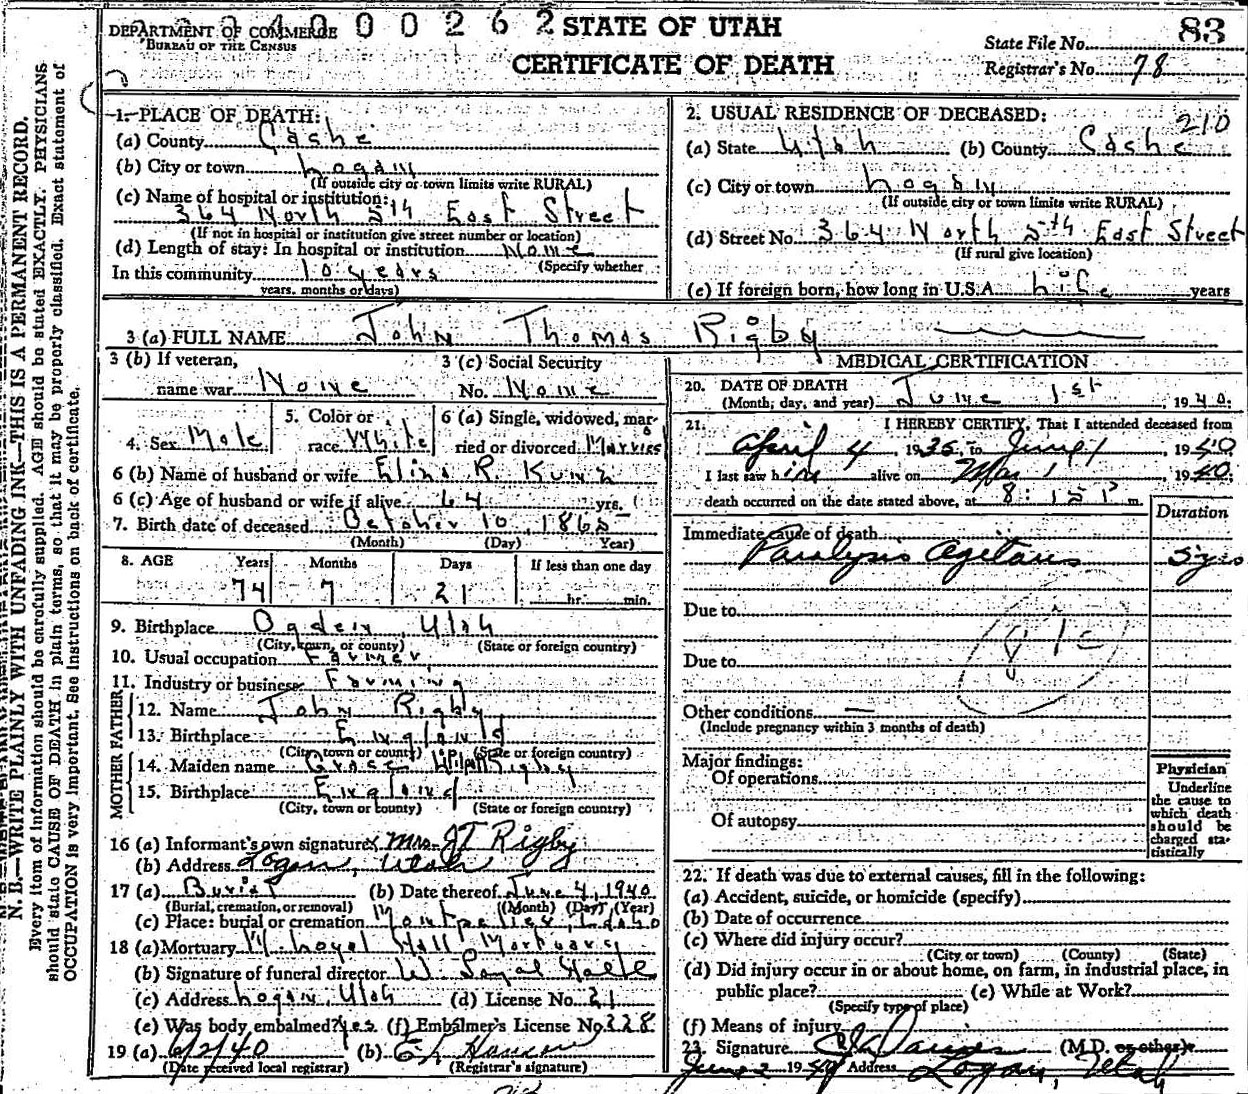 DEPARTMENT OF COMMERCE
BUREAU OF THE CENSUS
4 0 0 0 2 6 2
STATE OF UTAH
CERTIFICATE OF DEATH
83
State File No.
Registrar's No. 78
N. B.—WRITE PLAINLY WITH UNFADING INK—THIS IS A PERMANENT RECORD.
Every item of information should be carefully supplied. AGE should be stated EXACTLY. PHYSICIANS
should state CAUSE OF DEATH in plain terms, so that it may be properly classified. Exact statement of
OCCUPATION is very important. See instructions on back of certificate.
1. PLACE OF DEATH:
(a) County Cache
(b) City or town Logan
(If outside city or town limits write RURAL)
(c) Name of hospital or institution:
364 North 5th East Street
(If not in hospital or institution give street number or location)
(d) Length of stay: In hospital or institution None
(Specify whether
In this community 10 years
years, months or days)
2. USUAL RESIDENCE OF DECEASED:
210
(a) State Utah (b) County Cache
(c) City or town Logan
(If outside city or town limits write RURAL)
(d) Street No. 364 North 5th East Street
(If rural give location)
(e) If foreign born, how long in U.S.A. Life years
3 (a) FULL NAME John Thomas Rigby
3 (b) If veteran, name war None
3 (c) Social Security No. None
4. Sex Male
5. Color or race White
6 (a) Single, widowed, married or divorced Married
6 (b) Name of husband or wife Eliza R. Kunz
6 (c) Age of husband or wife if alive 64 yrs.
7. Birth date of deceased October 10, 1865
(Month) (Day) Year)
8. AGE Years Months Days If less than one day
74 7 21 hr. min.
9. Birthplace Ogden, Utah
(City, town, or county) (State or foreign country)
10. Usual occupation Farmer
11. Industry or business Farming
FATHER
12. Name John Rigby
13. Birthplace England
(City, town or county) (State or foreign country)
MOTHER
14. Maiden name Grace
15. Birthplace England
(City, town or county) (State or foreign country)
16 (a) Informant's own signature Mrs. J T Rigby
(b) Address Logan, Utah
17 (a) Burial (b) Date thereof June 4, 1940
(Burial, cremation, or removal) (Month) (Day) (Year)
(c) Place: burial or cremation Montpelier, Idaho
18 (a) Mortuary W. Loyal Hall Mortuary
(b) Signature of funeral director W Loyal Hall
(c) Address Logan, Utah (d) License No. 21
(e) Was body embalmed? Yes (f) Embalmer's License No. 328
19 (a) 6/2/40 (b)
(Date received local registrar) (Registrar's signature)
MEDICAL CERTIFICATION
20. DATE OF DEATH
(Month, day, and year) June 1st, 1940.
21. I HEREBY CERTIFY, That I attended deceased from
April 4, 1935, to June 1, 1940.
I last saw him alive on May 1, 1940.
death occurred on the date stated above, at 8:15 P m.
Duration
Immediate cause of death
Paralysis Agitans 5 yrs
Due to
Due to
Other conditions —
(Include pregnancy within 3 months of death)
Major findings:
Of operations
Of autopsy
Physician
Underline
the cause to
which death
should be
charged sta-
tistically
22. If death was due to external causes, fill in the following:
(a) Accident, suicide, or homicide (specify)
(b) Date of occurrence
(c) Where did injury occur?
(City or town) (County) (State)
(d) Did injury occur in or about home, on farm, in industrial place, in
public place? (e) While at Work?
(Specify type of place)
(f) Means of injury
23. Signature (M.D. or other)
June 2 1940 Address Logan, Utah